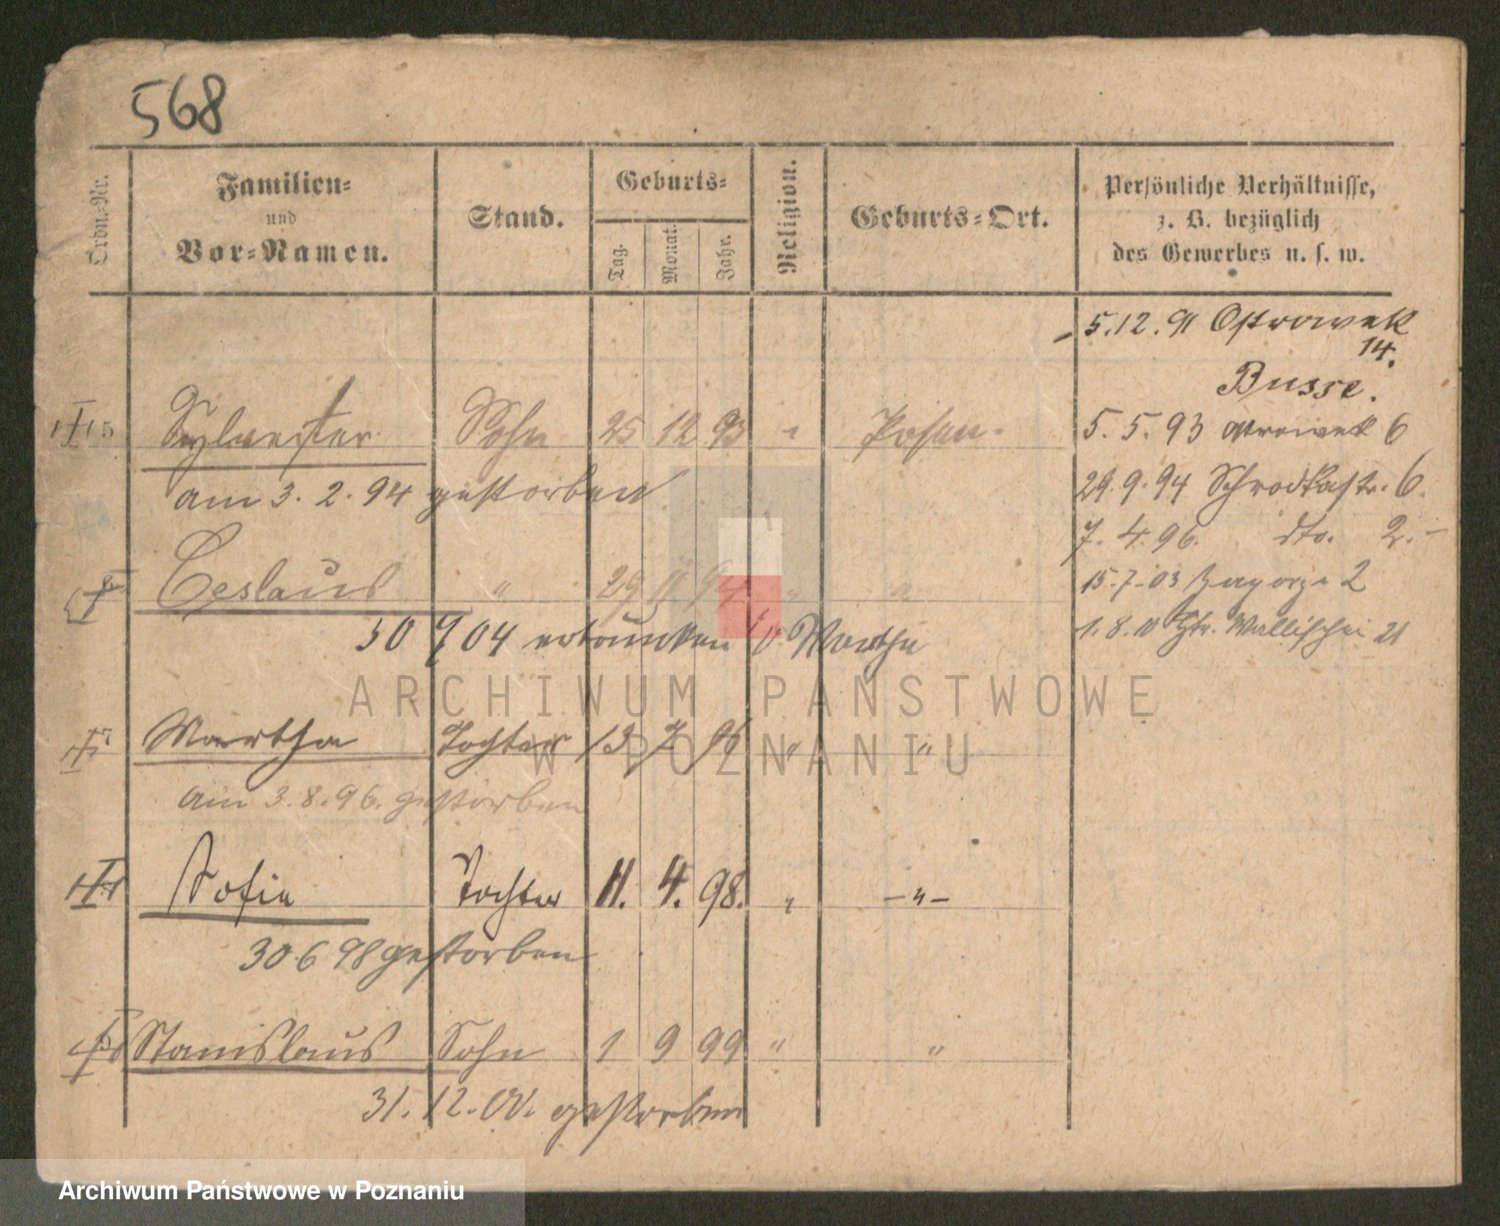 568
Ordn.-Nr.
Familien-
und
Vor-Namen.
Stand.
Geburts-
Tag.
Monat.
Jahr.
Religion.
Geburts-Ort.
Persönliche Verhältnisse,
z. B. bezüglich
des Gewerbes u. s. w.
5.12.91 Ostrowek
14.
Busse.
Sylvester Sohn 25 12 93 " Posen.
5.5.93 Ostrowek 6
am 3.2.94 gestorben
29.9.94 Schrodkastr. 6.
7.4.96. dto. 2.-
Ceslaus " 29 "
15.7.03 Zagorze 2
30 9 04 ertrunken Warthe
1.8.10 Wallischei 21
Martha Tochter 13 7 96 " "
am 3.8.96. gestorben
Sofie Tochter 11. 4. 98. " -"-
30 6 98 gestorben
Stanislaus Sohn 1 9 99 " "
31.12.00. gestorben
ARCHIWUM PAŃSTWOWE
W POZNANIU
Archiwum Państwowe w Poznaniu